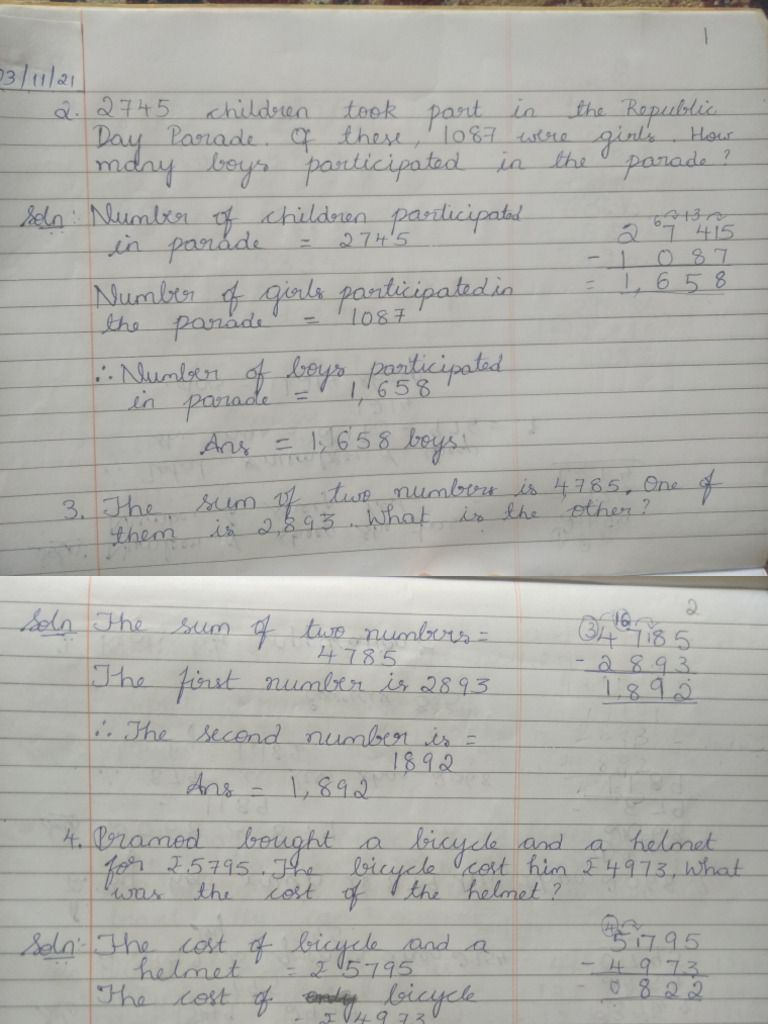 1
03/11/21
2. 2745 children took part in the Republic
Day Parade. Of these, 1087 were girls. How
many boys participated in the parade?
Soln: Number of children participated
in parade = 2745
6 13
2 7 415
- 1 0 8 7
= 1,6 5 8
Number of girls participated in
the parade = 1087
∴ Number of boys participated
in parade = 1,658
Ans = 1,658 boys.
3. The sum of two numbers is 4785. One of
them is 2,893. What is the other?
2
Soln The sum of two numbers =
4785
3 16
4 7185
- 2 8 9 3
1,8 9 2
The first number is 2893
∴ The second number is =
1892
Ans = 1,892
4. Pramod bought a bicycle and a helmet
for ₹5795. The bicycle cost him ₹4973. What
was the cost of the helmet?
Soln:- The cost of bicycle and a
helmet = ₹5795
4
51795
- 4 9 7 3
0 8 2 2
The cost of bicycle
= ₹4973